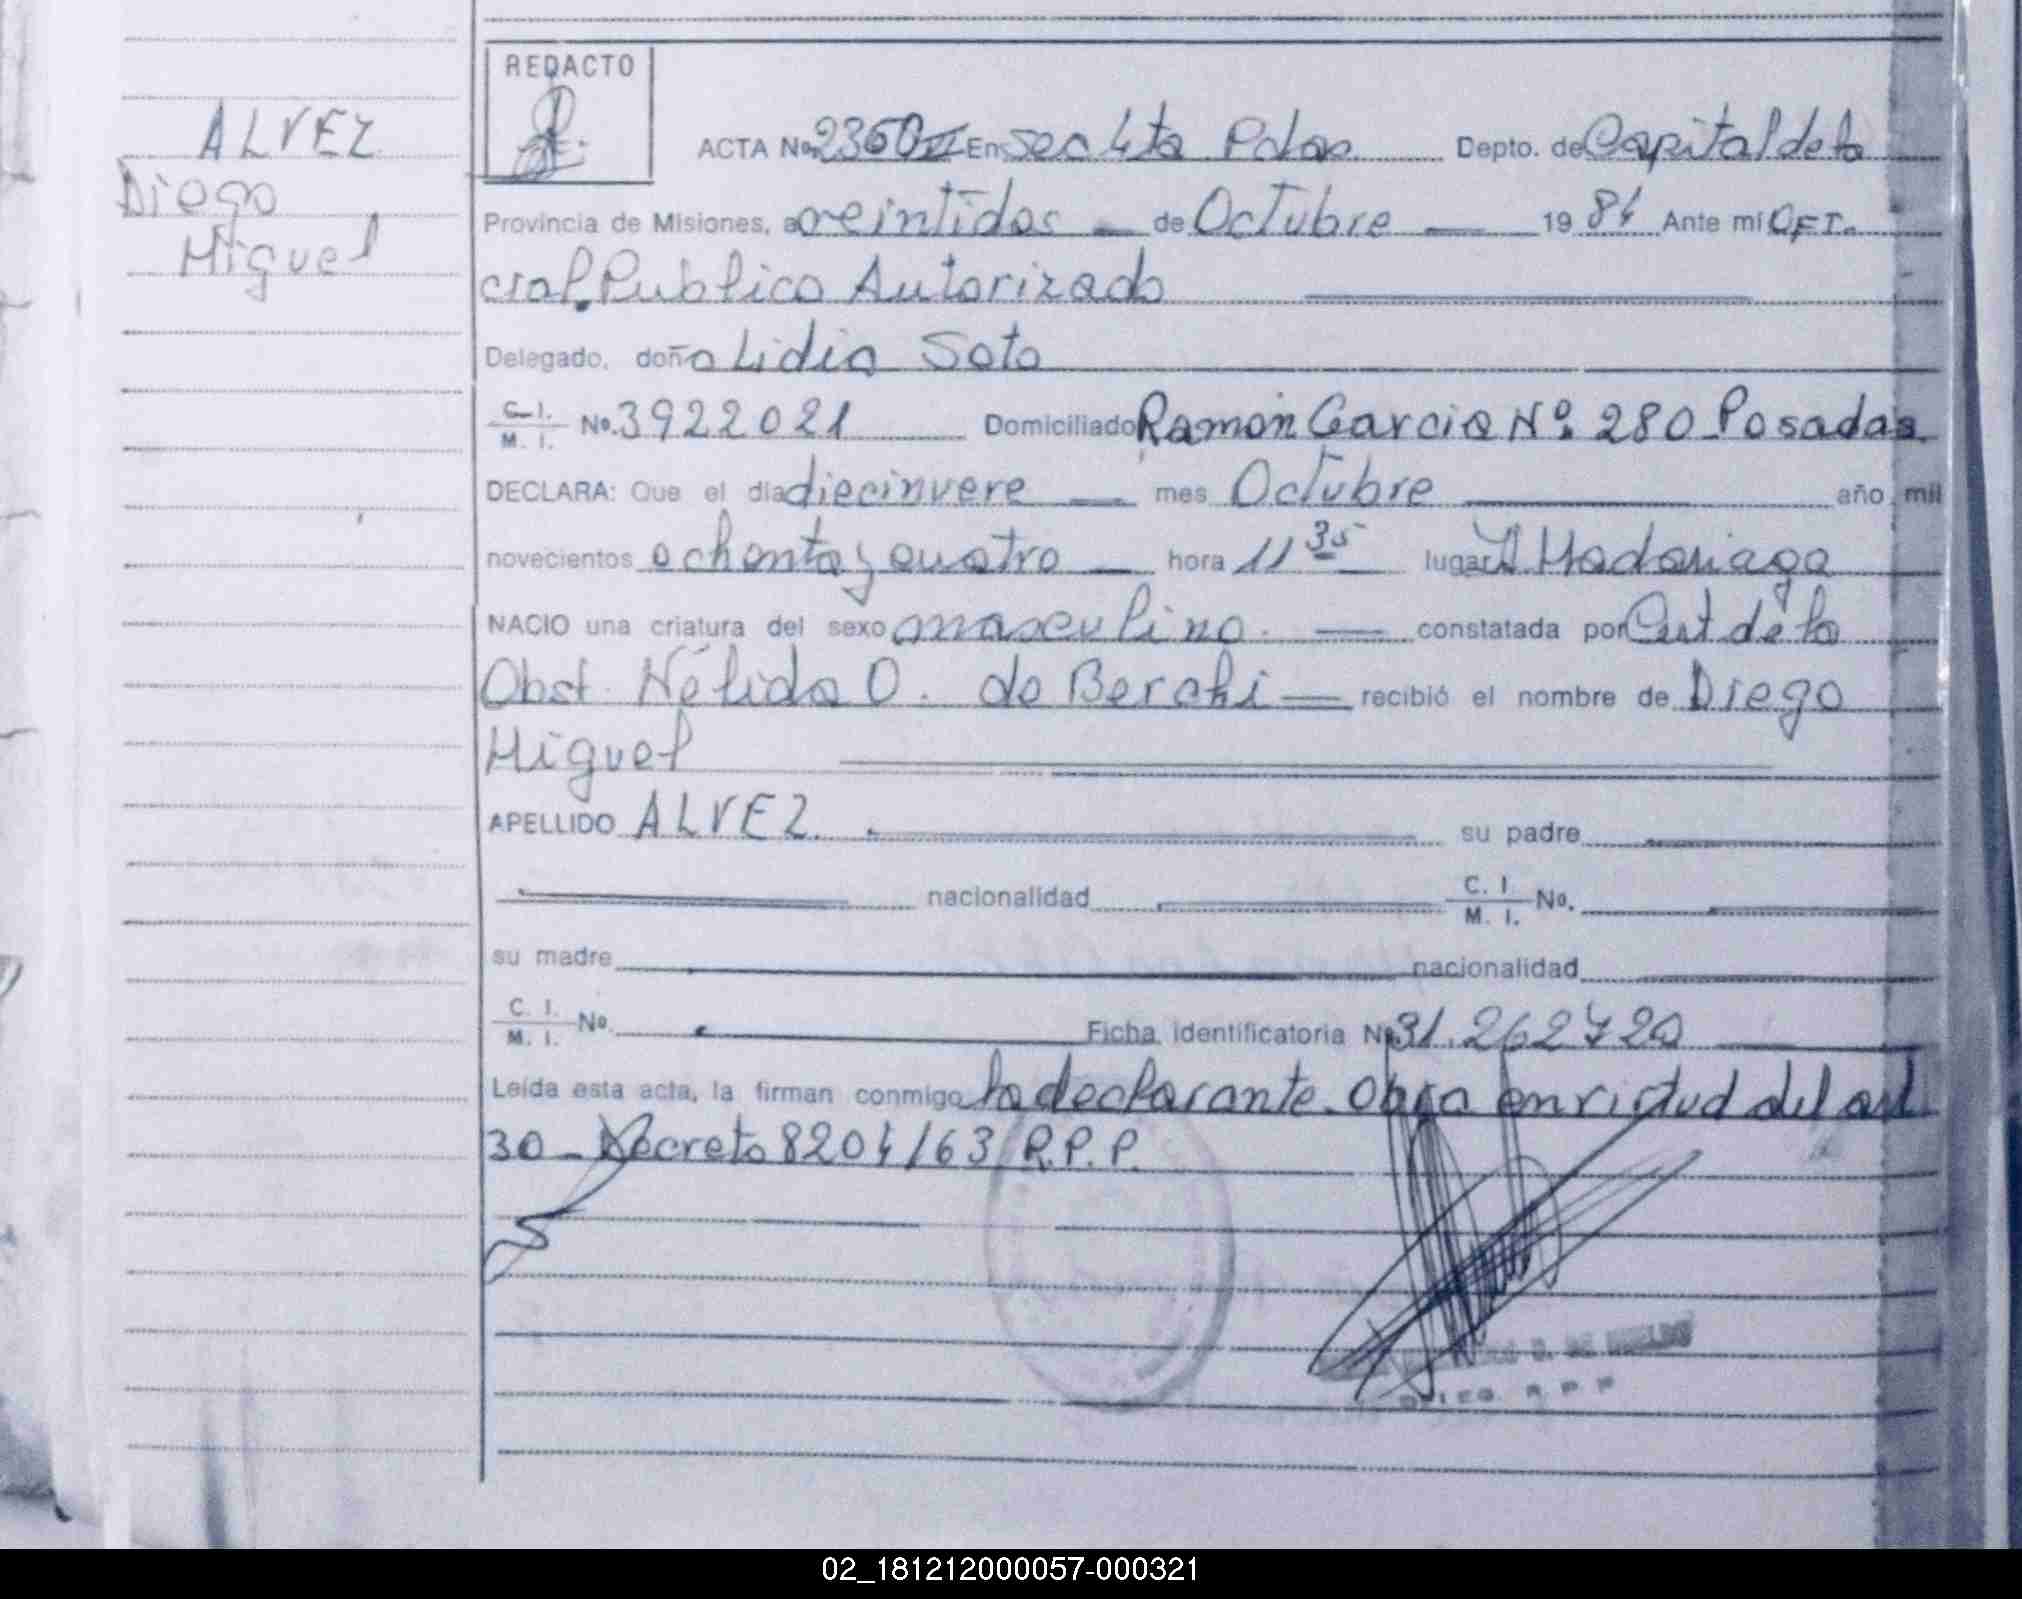 REDACTO
ALVEZ
Diego
Miguel
ACTA No. 2360 II En Sec 4ta Pdas Depto. de Capital de la
Provincia de Misiones, a veintidos de Octubre 1984 Ante mí Ofi-
cial Publico Autorizado
Delegado, doña Lidia Soto
C. I. / M. I. No. 3922021 Domiciliado Ramón Garcia Nº 280 Posadas
DECLARA: Que el dia diecinueve mes Octubre año mil
novecientos ochenta y cuatro hora 11 35 lugar H Madariaga
NACIO una criatura del sexo masculino. constatada por Cert de la
Obst. Nélida O. de Berchi recibió el nombre de Diego
Miguel
APELLIDO ALVEZ su padre
nacionalidad C. I. / M. I. No.
su madre nacionalidad
C. I. / M. I. No. Ficha identificatoria No. 31.262720
Leída esta acta, la firman conmigo la declarante. Obra en virtud del art
30 - Decreto 8204/63 R.P.P.
DELEG. R P P
02_181212000057-000321